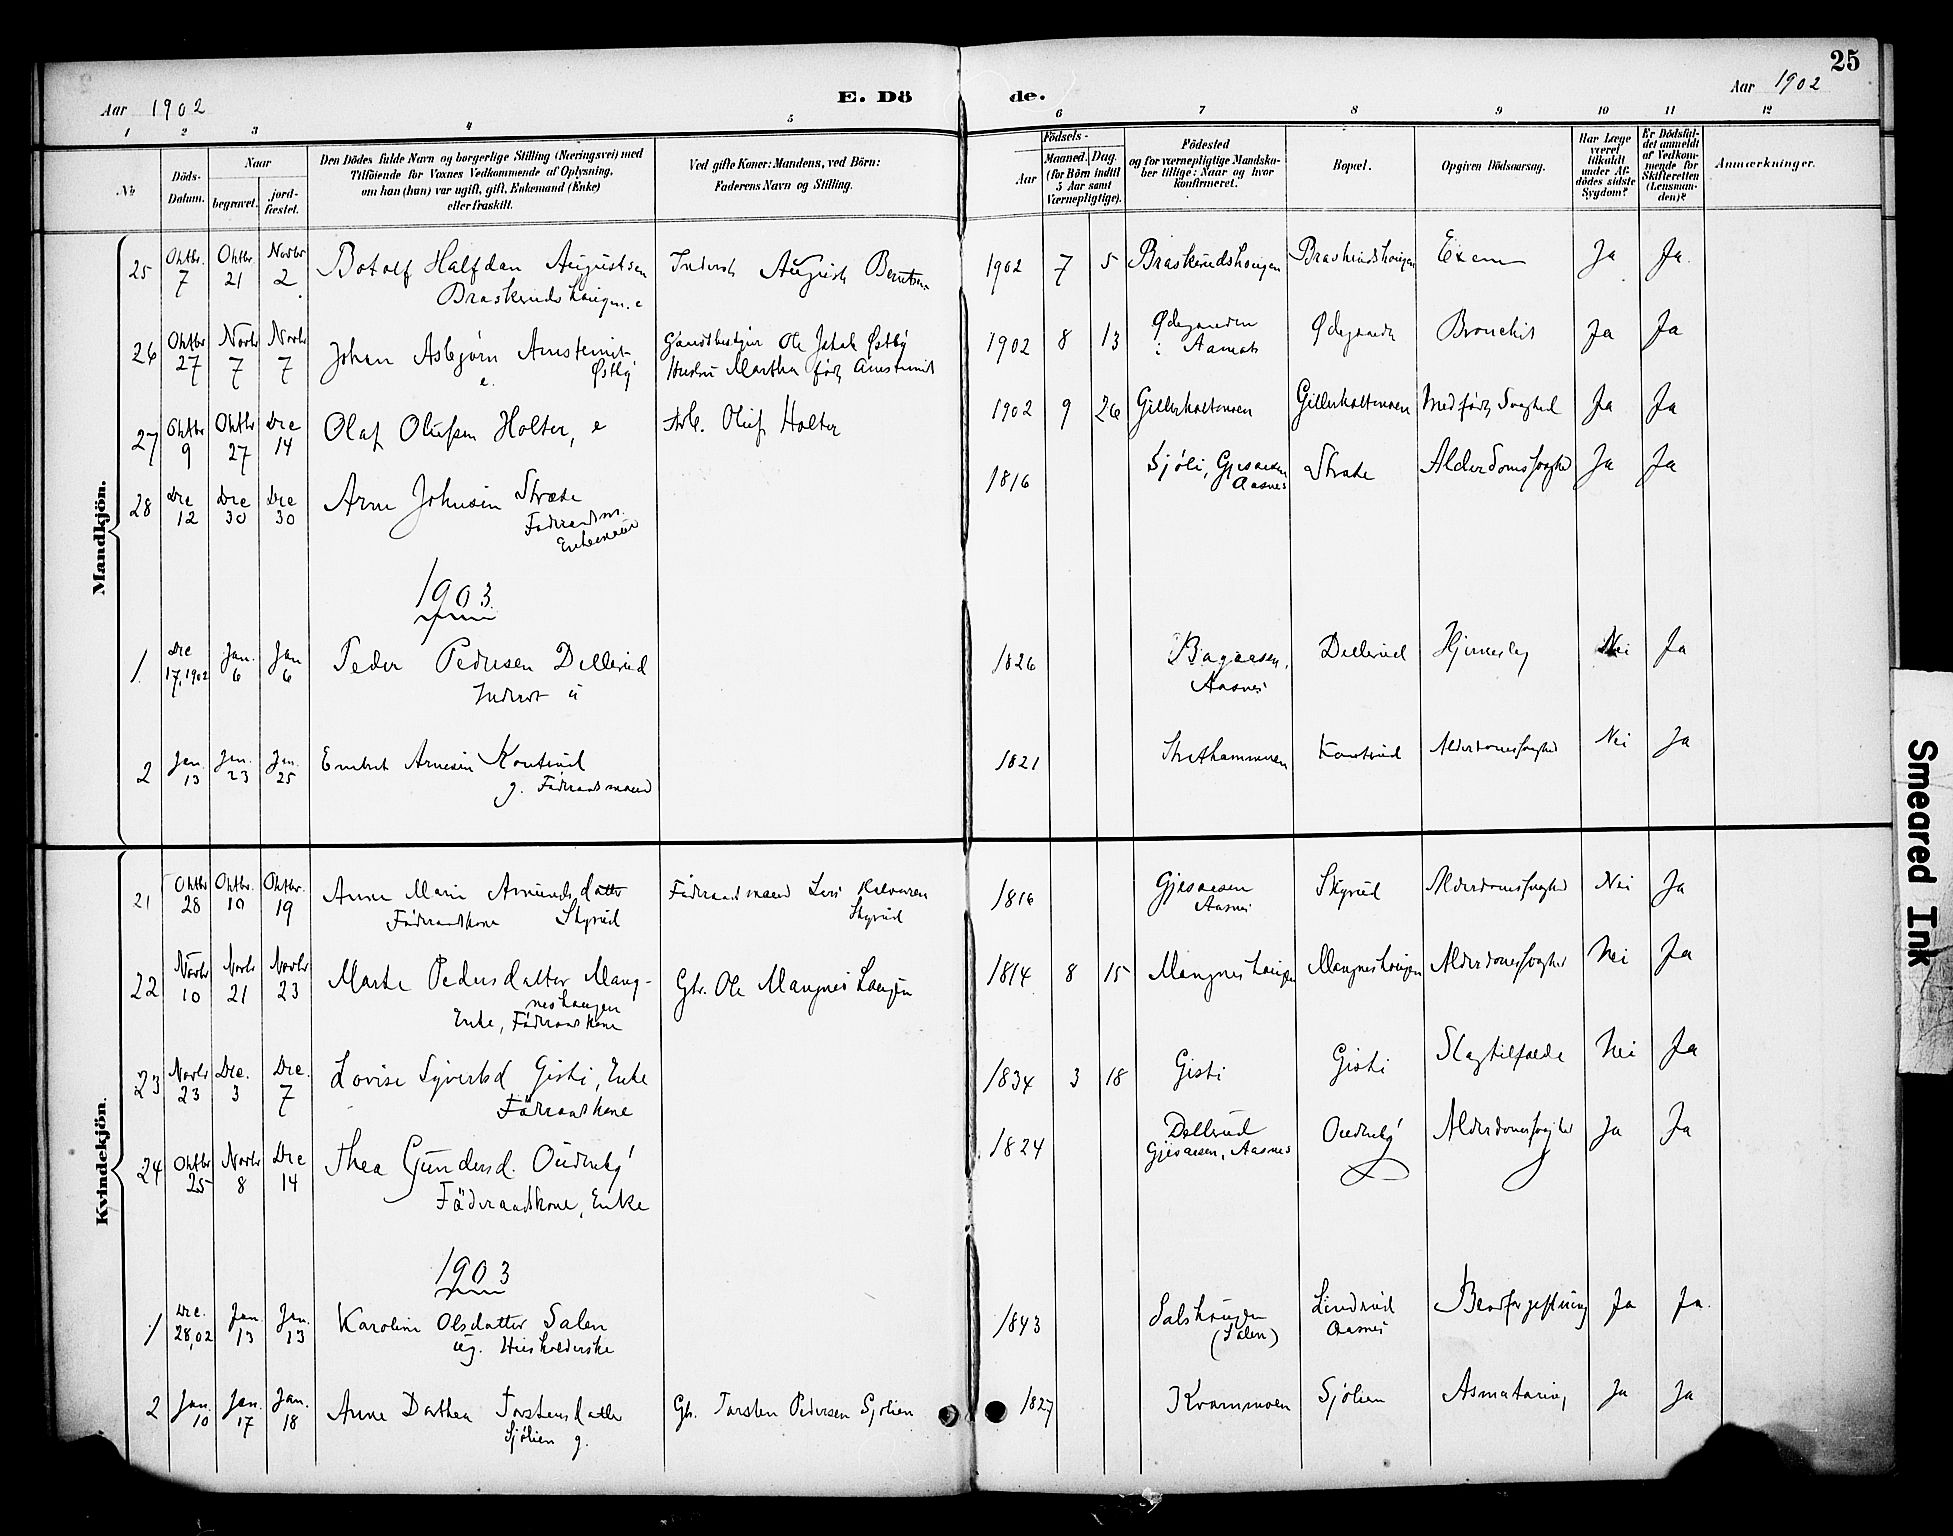 25
Aar 1902
E. Dö
de.
Aar 1902
1 2 3 4 5 6 7 8 9 10 11 12
No
Döds-
Datum.
Naar
begravet.
jord-
fæstet.
Den Dödes fulde Navn og borgerlige Stilling (Næringsvei) med
Tilföiende for Voxnes Vedkommende af Oplysning,
om han (hun) var ugift, gift, Enkemand (Enke)
eller fraskilt.
Ved gifte Koner: Mandens, ved Börn:
Faderens Navn og Stilling.
Födsels-
Aar
Maaned. Dag.
(for Börn indtil
5 Aar samt
Værnepligtige).
Födested
og for værnepligtige Mandska-
ber tillige: Naar og hvor
konfirmeret.
Bopæl.
Opgiven Dödsaarsag.
Har Læge
været
tilkaldt
under Af-
dödes sidste
Sygdom?
Er Dödsfal-
det anmeldt
af Vedkom-
mende for
Skifteretten
(Lensman-
den)?
Anmærkninger.
Mandkjön.
25 Oktbr. 7 Oktbr 21 Novbr 2 Botolf Halfdan Augustsen August Berntsen 1902 7 5 Braskerudshougen Braskerudshougen Exem Ja Ja
Braskerudshougen. e
26 Oktbr 27 Novbr 7 Novbr 7 Johan Asbjørn Arnstemit Ole Jakob Østby 1902 8 13 Ødegaarden Ødegaarden Bronchit Ja Ja
e. Østby Hustru Martha født i Aamot
27 Oktbr 9 Oktbr 27 Dec 14 Olaf Olufsen Holter, e Arb. Oluf Holter 1902 9 26 Gillerholtmoen Gillerholtmoen Medfødt Svaghed Ja Ja
28 Dec 12 Dec 30 Dec 30 Arne Johnsen Stræte 1816 Sjøli, Gjesaasen Stræte Alderdomssvaghed Ja Ja
Føderaadsm. Aasnes
Enkemand
1903
1 Dec 17, 1902 Jan. 6 Jan 6 Peder Pedersen Dellerud 1826 Bagaasen, Dellerud Hjerneslag Nei Ja
Inderst u Aasnes
2 Jan. 13 Jan. 23 Jan. 25 Embret Arnesen Konterud 1821 Konterud Alderdomssvaghed Nei Ja
g. Føderaadsmand
Kvindekjön.
21 Oktbr 28 Oktbr. 10 Oktbr. 19 Anne Marie Amundsdatter Føderaadsmand Lars Halvorsen 1816 Gjesaasen Skyrud Alderdomssvaghed Nei Ja
Føderaadskone Skyrud Skyrud Aasnes
22 Novbr 10 Novbr 21 Novbr 23 Marte Pedersdatter Mang- Gbr. Ole Mangneshaugen 1814 8 15 Mangneshaugen Mangneshaugen Alderdomssvaghed Nei Ja
neshaugen
Enke, Føderaadskone
23 Novbr 23 Dec. 3 Dec. 7 Lovise Syvertsd Gisti, Enke 1834 3 18 Gisti Gisti Slagtilfælde Nei Ja
Föderaadskone
24 Oktbr 25 Novbr 8 Dec 14 Thea Gundersd. Oudenby 1824 Dellerud Oudenby Alderdomssvaghed Ja Ja
Föderaadskone, Enke Gjesaasen, Aasnes
1903
1 Dec. 28, 02 Jan. 13 Jan. 13 Karoline Olsdatter Salen 1843 Salshougen Lindrud Blodforgiftning Ja Ja.
ug. Husholderske (Salen) Aasnes
2 Jan. 10 Jan. 17 Jan. 18 Anne Dorthea Torstensdatter Gb. Torsten Pedersen Sjølien 1827 Kvammoen Sjølien Ja Ja
Sjølien g.
Smeared Ink